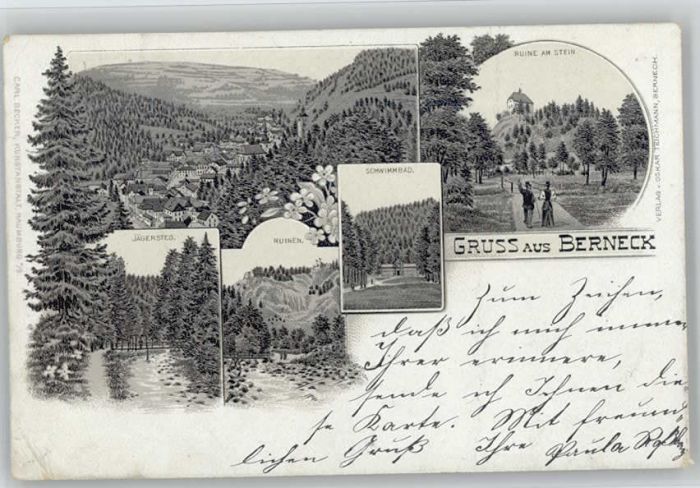 RUINE AM STEIN
SCHWIMMBAD.
JÄGERSTEG.
RUINEN.
GRUSS AUS BERNECK
CARL BECKER, KUNSTANSTALT, NAUMBURG
VERLAG v. OSKAR TEICHMANN, BERNECK.
Zum Zeichen,
daß ich mich immer
Ihrer erinnere,
sende ich Ihnen die-
se Karte. Mit freund-
lichen Gruß Ihre
Paula